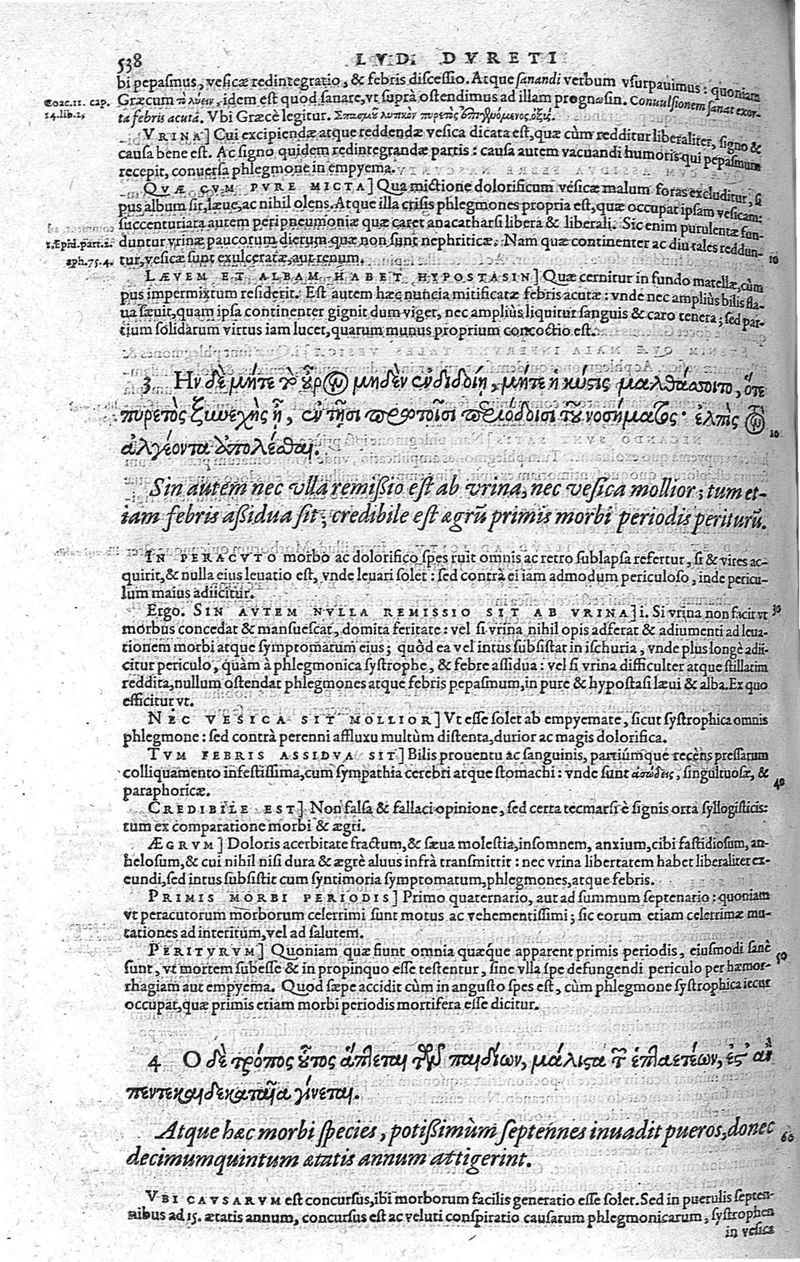 538 LVD. DVRETI
bi pepasmus, vesicæ redintegratio, & febris discessio. Atque sanandi verbum vsurpauimus: quoniam
Coac. 11. cap. 14. lib. 2.
Græcum τὸ λύειν, idem est quod sanare, vt suprà ostendimus ad illam prognωsin. Conuulsionem sanat exor-
ta febris acuta. Vbi Græcè legitur. Σπασμὸν λυπκὸν πυρετὸς ὀξύς.
VRINA] Cui excipiendæ atque reddendæ vesica dicata est, quæ cùm redditur liberaliter, signo &
causa bene est. Ac signo quidem redintegrandæ partis: causa autem vacuandi humoris qui pepasmum
recepit, conuersa phlegmone in empyema.
QVÆ CVM PVRE MICTA] Qua mictione dolorificum vesicæ malum foras excluditur, si
pus album sit, læue, ac nihil olens. Atque illa crisis phlegmones propria est, quæ occupat ipsam vesicam:
succenturiata autem peripneumoniæ quæ caret anacatharsi libera & liberali. Sic enim purulentæ fun-
1. Epid. part. 2. aph. 75. 4.
duntur vrinæ paucorum dierum quæ non sunt nephriticæ. Nam quæ continenter ac diu tales reddun-
tur, vesicæ sunt exulceratæ, aut renum. 10
LÆVEM ET ALBAM HABET HYPOSTASIN] Quæ cernitur in fundo matellæ, cùm
pus impermixtum resederit. Est autem hæc nuncia mitificatæ febris acutæ: vnde nec ampliùs bilis fla-
ua sæuit, quam ipsa continenter gignit dum viget, nec ampliùs liquitur sanguis & caro tenera; sed par-
tium solidarum virtus iam lucet, quarum munus proprium concoctio est.
3 Ην δὲ μήτε τὸ οὖρον μηδὲν ἐνδιδοίη, μήτε ἡ κύσις μαλθάσσοιτο, ὅτε
πυρετὸς ξυνεχὴς ἦ, ἐν τῇσι πρώτοισι περιόδοισι τοῦ νοσήματος· ἐλπὶς τὸν 20
ἀλγέοντα ἀπολέσθαι.
Sin autem nec vlla remißio est ab vrina, nec vesica mollior; tum et-
iam febris aßidua sit; credibile est ægrũ primis morbi periodis periturũ.
IN PERACVTO morbo ac dolorifico spes ruit omnis ac retro sublapsa refertur, si & vires ac-
quirit, & nulla eius leuatio est, vnde leuari solet: sed contrà ei iam admodum periculoso, inde pericu-
lum maius adiicitur.
Ergo. SIN AVTEM NVLLA REMISSIO SIT AB VRINA] i. Si vrina non facit vt 30
morbus concedat & mansuescat, domita feritate: vel si vrina nihil opis adferat & adiumenti ad leua-
tionem morbi atque symptomatum eius; quòd ea vel intus subsistat in ischuria, vnde plus longè adii-
citur periculo, quàm à phlegmonica systrophe, & febre assidua: vel si vrina difficulter atque stillatim
reddita, nullum ostendat phlegmones atque febris pepasmum, in pure & hypostasi læui & alba. Ex quo
efficitur vt.
NEC VESICA SIT MOLLIOR] Vt esse solet ab empyemate, sicut systrophica omnis
phlegmone: sed contrà perenni affluxu multùm distenta, durior ac magis dolorifica.
TVM FEBRIS ASSIDVA SIT] Bilis prouentu ac sanguinis, partiúmque recèns pressarum
colliquamento infestissima, cum sympathia cerebri atque stomachi: vnde sunt ἀσώδεις, singultuosæ, & 40
paraphoricæ.
CREDIBILE EST] Non falsa & fallaci opinione, sed certa tecmarsi è signis orta syllogisticis:
tum ex comparatione morbi & ægri.
ÆGRVM] Doloris acerbitate fractum, & sæua molestia, insomnem, anxium, cibi fastidiosum, an-
helosum, & cui nihil nisi dura & ægrè aluus infrà transmittit: nec vrina libertatem habet liberaliter ex-
eundi, sed intus subsistit cum syntimoria symptomatum, phlegmones, atque febris.
PRIMIS MORBI PERIODIS] Primo quaternario, aut ad summum septenario: quoniam
vt peracutorum morborum celerrimi sunt motus ac vehementissimi; sic eorum etiam celerrimæ mu-
tationes ad interitum, vel ad salutem.
PERITVRVM] Quoniam quæ fiunt omnia quæque apparent primis periodis, eiusmodi sanè 50
sunt, vt mortem subesse & in propinquo esse testentur, sine vlla spe defungendi periculo per hæmor-
rhagiam aut empyema. Quod sæpe accidit cùm in angusto spes est, cùm phlegmone systrophica iecur
occupat, quæ primis etiam morbi periodis mortifera esse dicitur.
4 Ο δὲ τρόπος οὗτος ἅπτεται τῶν παιδίων, μάλιστα τῶν ἑπταετέων, ἔστ’ ἂν
πεντεκαιδεκαταῖα γίνεται.
Atque hæc morbi species, potißimùm septennes inuadit pueros, donec 60
decimumquintum ætatis annum attigerint.
VBI CAVSARVM est concursus, ibi morborum facilis generatio esse solet. Sed in puerulis septen-
nibus ad 15. ætatis annum, concursus est ac veluti conspiratio causarum phlegmonicarum, systrophen
in vesica